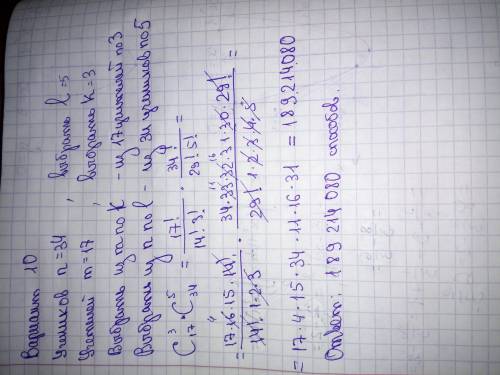 Вариант 10
Учеников n=34 , выбрать l=5
Учителей m=17 , выбрать k=3
Выбрать из m по k - из 17 учителей по 3
Выбрать из n по l - из 34 учеников по 5
C³₁₇ · C⁵₃₄ = 17!/(14! 3!) · 34!/(29! 5!) =
= (17·16·15·14!)/(14! 1·2·3) · (34·33·32·31·30·29!)/(29! 1·2·3·4·5) =
= 17·4·15·34·11·16·31 = 189.214.080
Ответ: 189 214 080 способов.